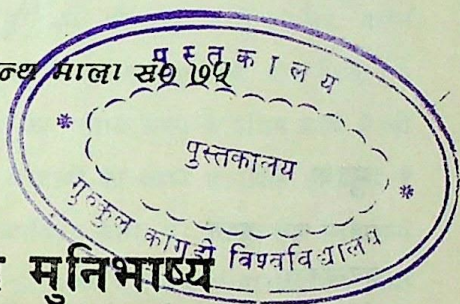 न्थ माला सं० ७५
पुस्तकालय
पुस्तकालय
गुरुकुल कांगड़ी विश्वविद्यालय
मुनिभाष्य